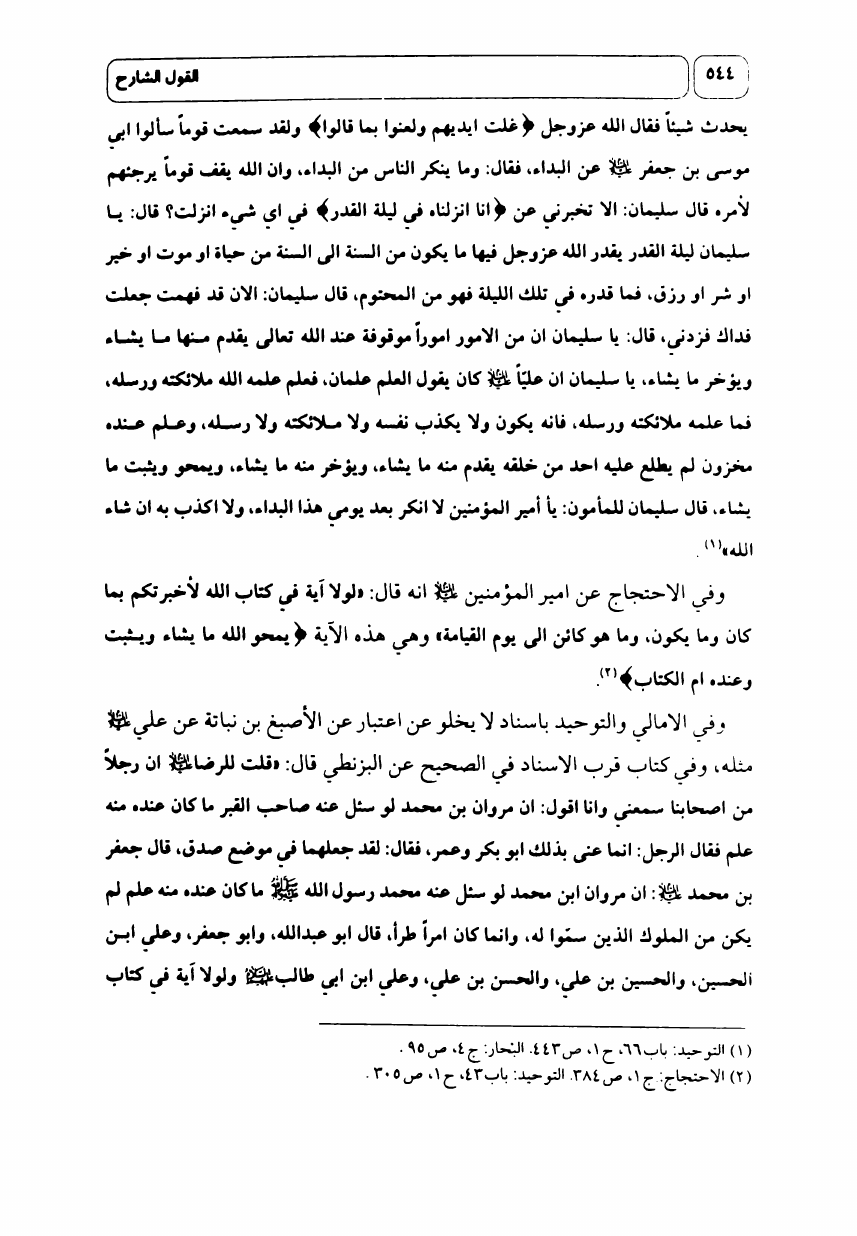 ٥٤٤
القول الشارح
يحدث شيئاً فقال الله عزوجل ﴿غلت ايديهم ولعنوا بما قالوا﴾ ولقد سمعت قوماً سألوا ابي
موسى بن جعفر ﵇ عن البداء، فقال: وما ينكر الناس من البداء، وان الله يقف قوماً يرجئهم
لأمره قال سليمان: الا تخبرني عن ﴿انا انزلناه في ليلة القدر﴾ في اي شيء انزلت؟ قال: يا
سليمان ليلة القدر يقدر الله عزوجل فيها ما يكون من السنة الى السنة من حياة او موت او خير
او شر او رزق، فما قدره في تلك الليلة فهو من المحتوم، قال سليمان: الان قد فهمت جعلت
فداك فزدني، قال: يا سليمان ان من الامور اموراً موقوفة عند الله تعالى يقدم منها ما يشاء
ويؤخر ما يشاء، يا سليمان ان عليّاً ﵇ كان يقول العلم علمان، فعلم علمه الله ملائكته ورسله،
فما علمه ملائكته ورسله، فانه يكون ولا يكذب نفسه ولا ملائكته ولا رسله، وعلم عنده
مخزون لم يطلع عليه احد من خلقه يقدم منه ما يشاء، ويؤخر منه ما يشاء، ويمحو ويثبت ما
يشاء، قال سليمان للمأمون: يأ أمير المؤمنين لا انكر بعد يومي هذا البداء، ولا اكذب به ان شاء
الله»(١).
وفي الاحتجاج عن امير المؤمنين ﵇ انه قال: «لولا آية في كتاب الله لأخبرتكم بما
كان وما يكون، وما هو كائن الى يوم القيامة» وهي هذه الآية ﴿يمحو الله ما يشاء ويثبت
وعنده ام الكتاب﴾(٢).
وفي الامالي والتوحيد باسناد لا يخلو عن اعتبار عن الأصبغ بن نباتة عن علي ﵇
مثله، وفي كتاب قرب الاسناد في الصحيح عن البزنطي قال: «قلت للرضا ﵇ ان رجلاً
من اصحابنا سمعني وانا اقول: ان مروان بن محمد لو سئل عنه صاحب القبر ما كان عنده منه
علم فقال الرجل: انما عنى بذلك ابو بكر وعمر، فقال: لقد جعلهما في موضع صدق، قال جعفر
بن محمد ﵇: ان مروان ابن محمد لو سئل عنه محمد رسول الله ﷺ ما كان عنده منه علم لم
يكن من الملوك الذين سمّوا له، وانما كان امراً طرأ، قال ابو عبدالله، وابو جعفر، وعلي ابن
الحسين، والحسين بن علي، والحسن بن علي، وعلي ابن ابي طالب ﵇ ولولا آية في كتاب
(١) التوحيد: باب٦٦، ح١، ص٤٤٣. البحار: ج٤، ص٩٥.
(٢) الاحتجاج: ج١، ص٣٨٤. التوحيد: باب٤٣، ح١، ص٣٠٥.